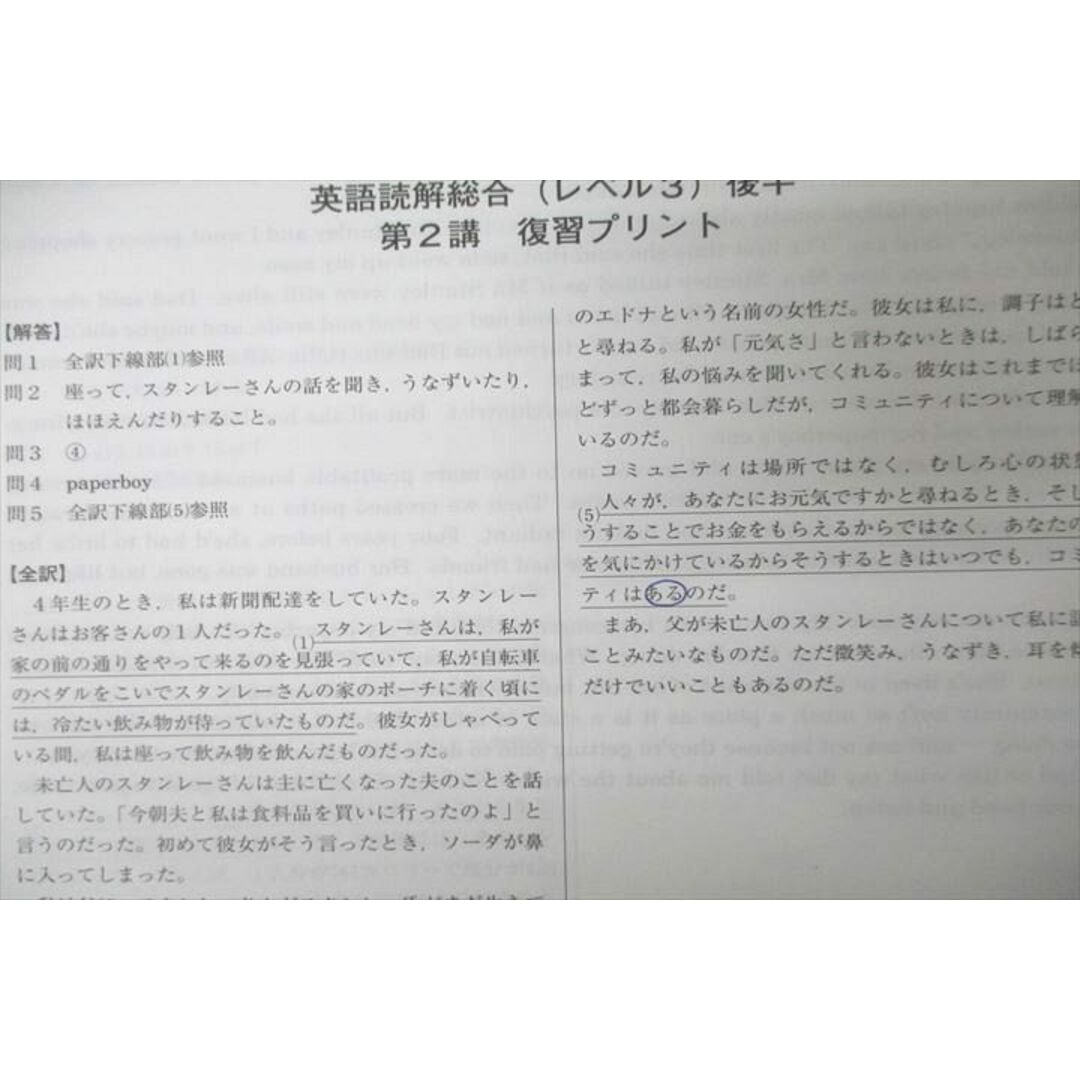 英語読解総合（レベル3）後半
第2講　復習プリント
【解答】
問1　全訳下線部(1)参照
問2　座って，スタンレーさんの話を聞き，うなずいたり，
ほほえんだりすること。
問3　④
問4　paperboy
問5　全訳下線部(5)参照
【全訳】
　4年生のとき，私は新聞配達をしていた。スタンレー
さんはお客さんの1人だった。(1)スタンレーさんは，私が
家の前の通りをやって来るのを見張っていて，私が自転車
のペダルをこいでスタンレーさんの家のポーチに着く頃に
は，冷たい飲み物が待っていたものだ。彼女がしゃべって
いる間，私は座って飲み物を飲んだものだった。
　未亡人のスタンレーさんは主に亡くなった夫のことを話
していた。「今朝夫と私は食料品を買いに行ったのよ」と
言うのだった。初めて彼女がそう言ったとき，ソーダが鼻
に入ってしまった。
のエドナという名前の女性だ。彼女は私に，調子はど
と尋ねる。私が「元気さ」と言わないときは，しばら
まって，私の悩みを聞いてくれる。彼女はこれまでほ
どずっと都会暮らしだが，コミュニティについて理解
いるのだ。
　コミュニティは場所ではなく，むしろ心の状態
(5)人々が，あなたにお元気ですかと尋ねるとき，そし
うすることでお金をもらえるからではなく，あなたの
を気にかけているからそうするときはいつでも，コミ
ティはあるのだ。
　まあ，父が未亡人のスタンレーさんについて私に話
ことみたいなものだ。ただ微笑み，うなずき，耳を傾
だけでいいこともあるのだ。